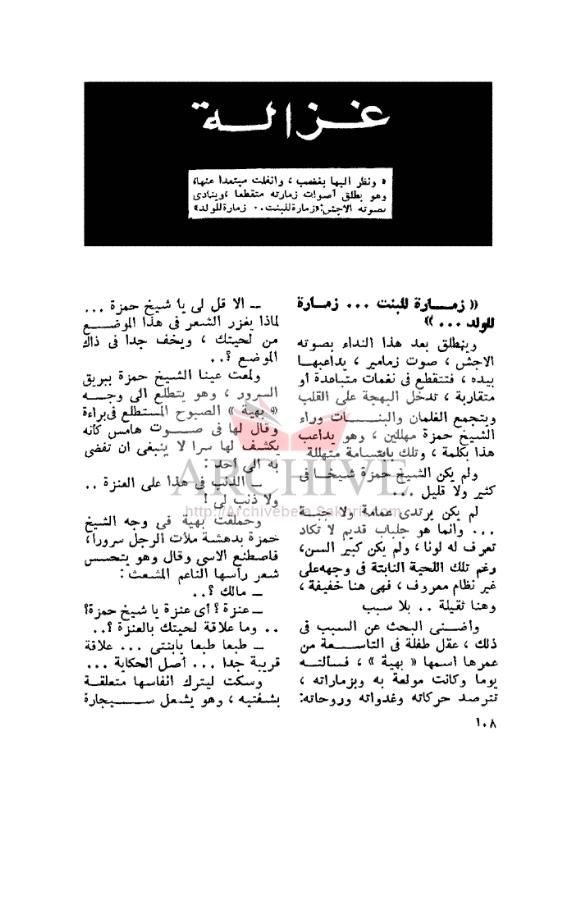 غزالة
« ونظر اليها بغضب ، وانفلت مبتعدا عنها،
وهو يطلق أصوات زمارته متقطعا ،وينادى
بصوته الاجش:«زمارة للبنت.. زمارة للولد»
« زمـــارة للبنت ... زمارة
للولد ... »
وينطلق بعد هذا النداء بصوته
الاجش ، صوت زمامير ، يداعبها
بيده ، فتتقطع فى نغمات متباعدة أو
متقاربة ، تدخل البهجة على القلب
ويتجمع الغلمان والبنـــات وراء
الشيخ حمزة مهللين ، وهو يداعب
هذا بكلمة ، وتلك بابتسامة متهللة
ولم يكن الشيخ حمزة شيخـا فى
كثير ولا قليل ...
لم يكن يرتدى عمامة ولا جبـة
... وانما هو جلباب قديم لا تكاد
تعرف له لونا ، ولم يكن كبير السن،
رغم تلك اللحية النابتة فى وجهه على
غير نظام معروف ، فهى هنا خفيفة ،
وهنا ثقيلة .. بلا سبب
وأضـنى البحث عن السبب فى
ذلك ، عقل طفلة فى التاسـعة من
عمرها اسمها « بهية » ، فسألتـه
يوما وكانت مولعة به وبزماراته ،
تترصد حركاته وغدواته وروحاته:
ــ الا قل لى يا شيخ حمزة ...
لماذا يغزر الشعر فى هذا الموضــع
من لحيتك ، ويخف جدا فى ذاك
الموضع ؟..
ولمعت عينا الشـيخ حمزة ببريق
السرور ، وهو يتطلع الى وجــه
« بهية » الصبوح المستطلع فى براءة
وقال لها فى صــوت هامس كأنه
يكشف لها سرا لا ينبغى ان تفضى
به الى احد :
ــ الذنب فى هذا على العنزة ..
ولا ذنب لى !
وحملقت بهية فى وجه الشيخ
حمزة بدهشة ملأت الرجل سرورا،
فاصطنع الاسى وقال وهو يتحسس
شعر رأسها الناعم المشعث :
ــ مالك ؟..
ــ عنزة ؟ أى عنزة يا شيخ حمزة؟
.. وما علاقة لحيتك بالعنزة ؟..
ــ طبعا طبعا يابنتى ... علاقة
قريبة جدا ... أصل الحكاية ...
وسكت ليترك انفاسها متعلقـة
بشفتيه ، وهو يشعل ســيجارة
١٠٨
ARCHIVE